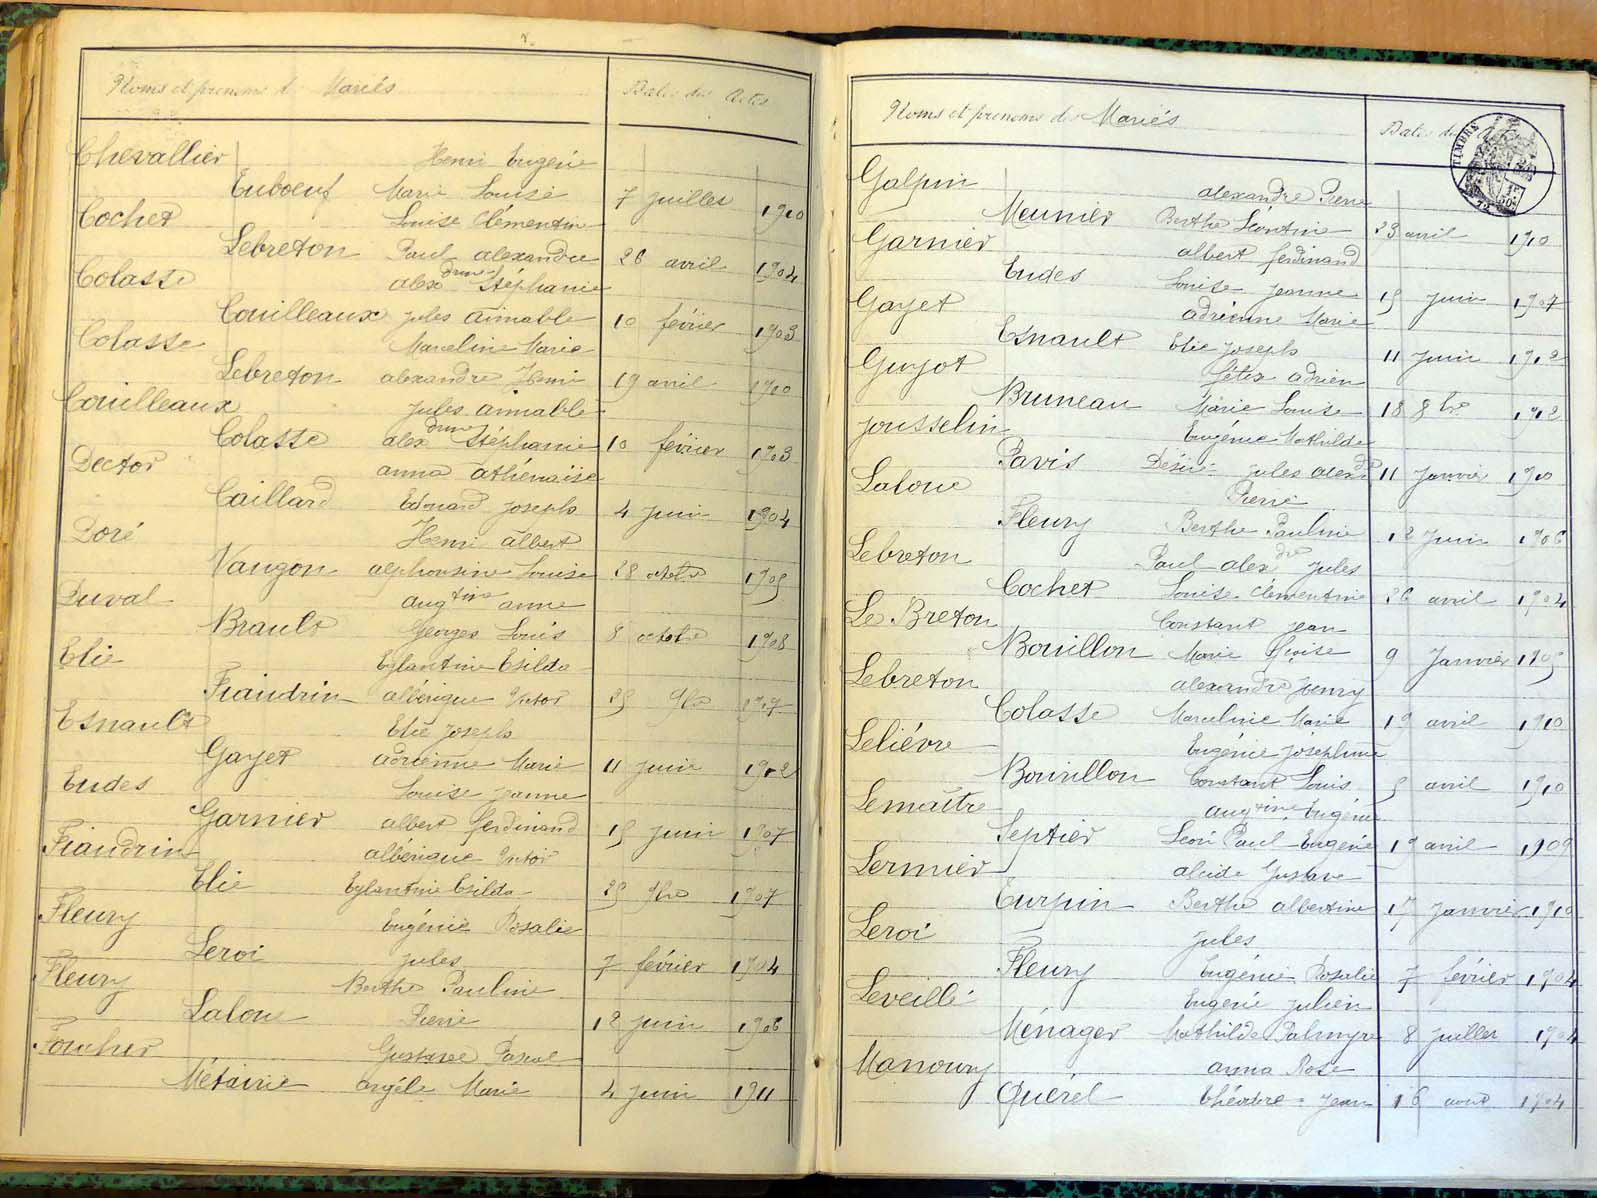 Noms et prénoms des Mariés Dates des Actes
Chevallier Henri Eugénie
Euboeuf Marie Louise 7 juillet 1910
Cochet Louise Clémentine
Lebreton Paul alexandre 26 avril 1904
Colasse alexdrine Stéphanie
Couilleaux jules aimable 10 février 1903
Colasse Marceline Marie
Lebreton alexandre Henri 19 avril 1910
Couilleaux jules aimable
Colasse alexdrine Stéphanie 10 février 1903
Dector anna athénaïse
Caillard Edouard joseph 4 juin 1904
Doré Henri albert
Vaugon alphonsine Louise 28 octobre 1905
Duval augtine anne
Brault Georges Louis 8 octobre 1908
Elie Eglantine Esilda
Fiandrin albérique Victor 25 9bre 1907
Esnault Elie joseph
Gayet adrienne Marie 11 juin 1912
Eudes Louise jeanne
Garnier albert ferdinand 15 juin 1907
Fiandrin albérique Victor
Elie Eglantine Esilda 25 9bre 1907
Fleury Eugénie Rosalie
Leroi jules 7 février 1904
Fleury Berthe Pauline
Laloue Pierre 12 juin 1906
Foucher Gustave Pascal
Métairie angéle Marie 4 juin 1911
Noms et prénoms des Mariés Dates des
TIMBRE
Galpin alexandre Pierre
Meunier Berthe Léontine 23 avril 1910
Garnier albert ferdinand
Eudes Louise jeanne 15 juin 1907
Gayet adrienne Marie
Esnault Elie joseph 11 juin 1912
Guyot félix adrien
Bruneau Marie Louise 18 8bre 1912
jousselin Eugénie Mathilde
Pavis Désiré jules alexdre 11 Janvier 1910
Laloue Pierre
Fleury Berthe Pauline 12 juin 1906
Lebreton Paul alexdre jules
Cochet Louise Clémentine 26 avril 1904
Le Breton Constant jean
Bouillon Marie fçoise 9 Janvier 1905
Lebreton alexandre Henry
Colasse Marceline Marie 19 avril 1910
Leliévre Eugénie joséphine
Bouvillon Constant Louis 5 avril 1910
Lemaître augtine Eugénie
Septier Léon Paul Eugéne 19 avril 1909
Lermier alcide Gustave
Turpin Berthe albertine 17 janvier 1910
Leroi jules
Fleury Eugénie Rosalie 7 février 1904
Leveillé Eugène julien
Ménager Mathilde Palmyre 8 juillet 1904
Manoury anna Rose
Quérel théodore jean 16 aout 1904